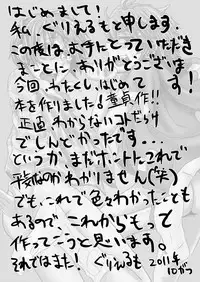 はじめまして!
私、ぐりえるもと申します。
この度はお手にとっていただき
まことに、ありがとうございま
す!
今回、わたくし、はじめて
本を作りました!童貞作!!
正直わからないコトだらけ
でしんどかったです...
というか、まだホントにこれで
平気なのかわかりません(笑)
でも、これで色々わかったことも
あるので、これからもって
作ってこうと思います。
それではまた! ぐりえるも 2011年
10がつ